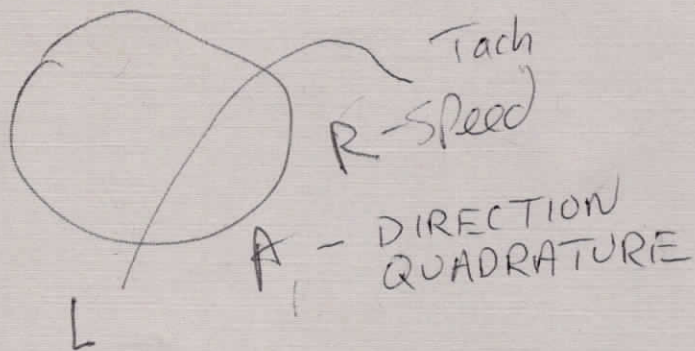 Tach
R - Speed
A - DIRECTION
QUADRATURE
L